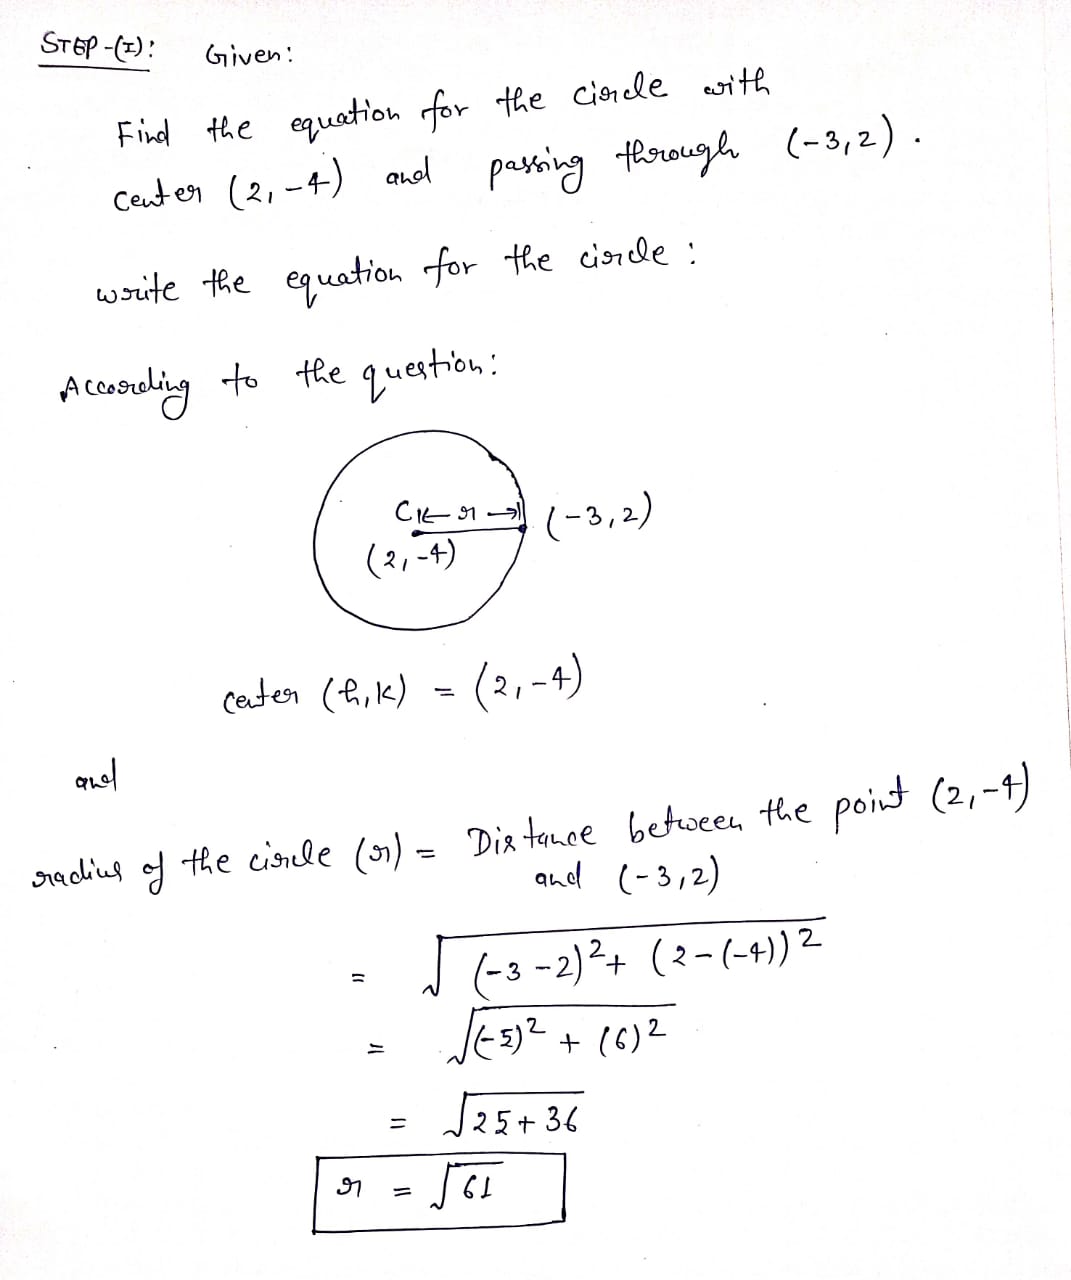 STEP-(I): Given:
Find the equation for the circle with
center (2,-4) and passing through (-3,2).
write the equation for the circle:
According to the question:
C r (-3,2)
(2,-4)
center (h,k) = (2,-4)
and
radius of the circle (r) = Distance between the point (2,-4)
and (-3,2)
= √(-3-2)²+ (2-(-4))²
= √(-5)² + (6)²
= √25+36
r = √61